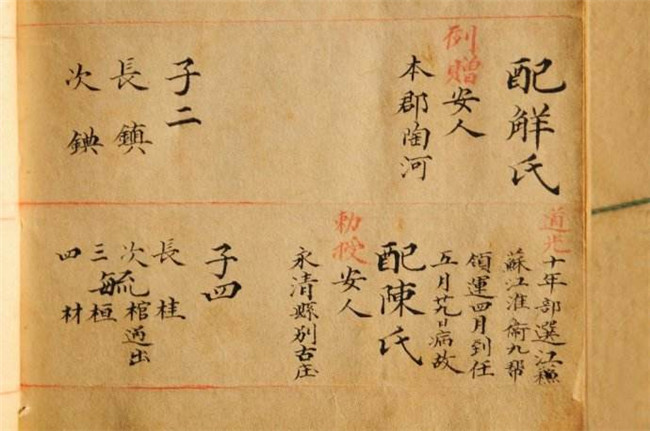 配觧氏
例贈安人
本郡陶河
子二
長鎮
次錪
道光十年部選江蘓
蘇江淮衛九幫
領運四月到任
五月廿九日病故
配陳氏
勅授安人
永清縣別古庄
子四
長桂
次棺過出
毓
三桓
四材